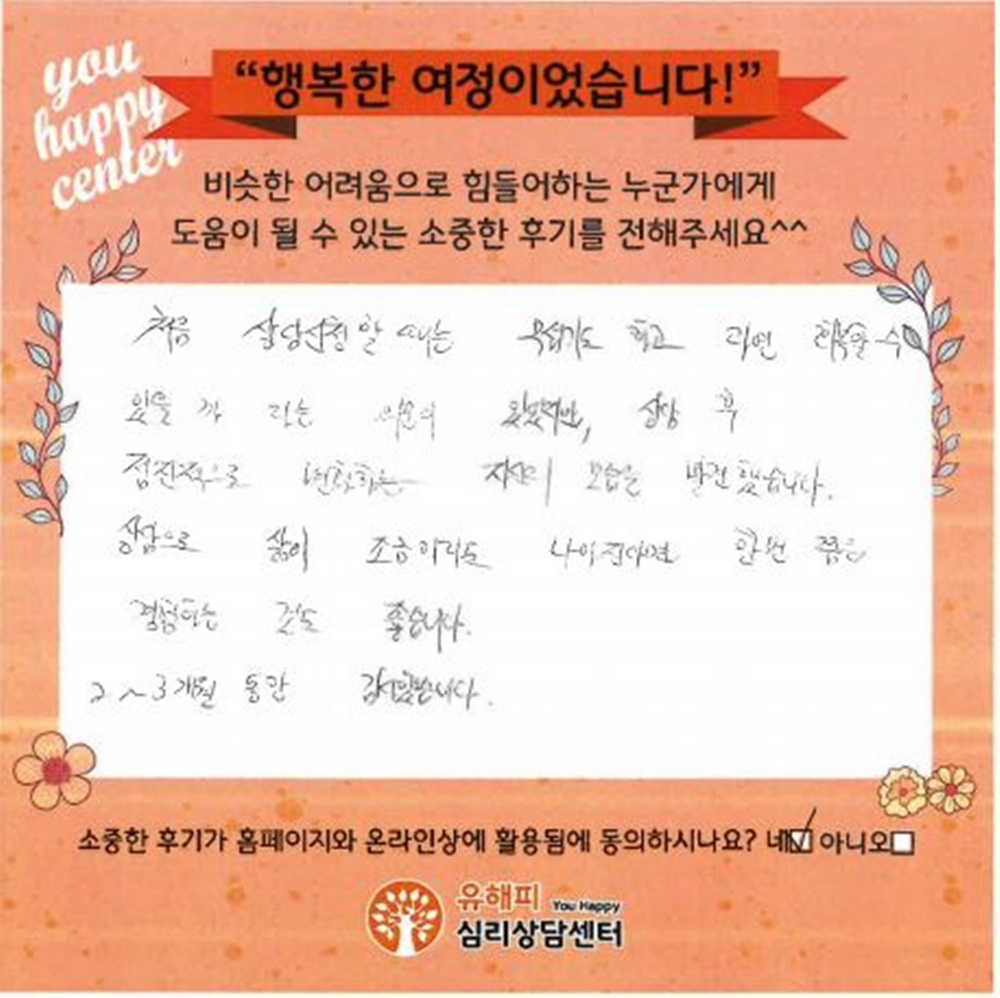 you
happy
center
“행복한 여정이었습니다!”
비슷한 어려움으로 힘들어하는 누군가에게
도움이 될 수 있는 소중한 후기를 전해주세요^^
처음 상담신청 할 때는 무섭기도 하고 과연 회복할 수
있을 까 라는 의문이 있었지만, 상담 후
점진적으로 변화하는 자신의 모습을 발견했습니다.
상담으로 삶이 조금이라도 나아진다면 한번 쯤은
경험하는 것도 좋습니다.
2~3개월 동안 감사했습니다.
소중한 후기가 홈페이지와 온라인상에 활용됨에 동의하시나요? 네☑ 아니오☐
유해피 You Happy
심리상담센터